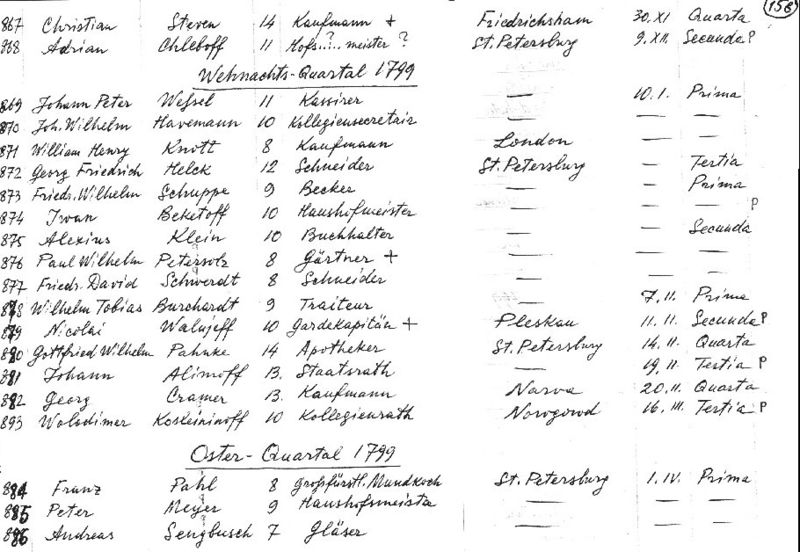 (158)
867 Christian Steven 14 Kaufmann + Friedrichsham 30.XI Quarta
868 Adrian Chleboff 11 Hofs..?.. meister ? St. Petersburg 9.XII. Secunda P
Weihnachts-Quartal 1799
869 Johann Peter Weßel 11 Kassirer — 10.1. Prima
870 Joh. Wilhelm Havemann 10 Kollegiensecretair — — —
871 William Henry Knott 8 Kaufmann London
872 Georg Friedrich Helck 12 Schneider St. Petersburg — Tertia
873 Friedr. Wilhelm Schuppe 9 Becker — — Prima
874 Iwan Beketoff 10 Haushofmeister — — — P
875 Alexius Klein 10 Buchhalter — — Secunda
876 Paul Wilhelm Petersolz 8 Gärtner + — — —
877 Friedr. David Schwerdt 8 Schneider — — —
878 Wilhelm Tobias Burchardt 9 Traiteur — 7.11. Prima
879 Nicolai Walujeff 10 Gardekapitän + Pleskau 11.11. Secunda P
880 Gottfried Wilhelm Pahnke 14 Apotheker St. Petersburg 14.11. Quarta
881 Johann Alimoff 13. Staatsrath — 19.11. Tertia P
882 Georg Cramer 13. Kaufmann Narva 20.11. Quarta
893 Wolodimer 10 Kollegienrath Nowgorod 16.III. Tertia P
Oster-Quartal 1799
884 Franz Pahl 8 Großfürstl. Mundkoch St. Petersburg 1.IV. Prima
885 Peter Meyer 9 Haushofsmeister — — —
886 Andreas Sengbusch 7 Gläser — — —